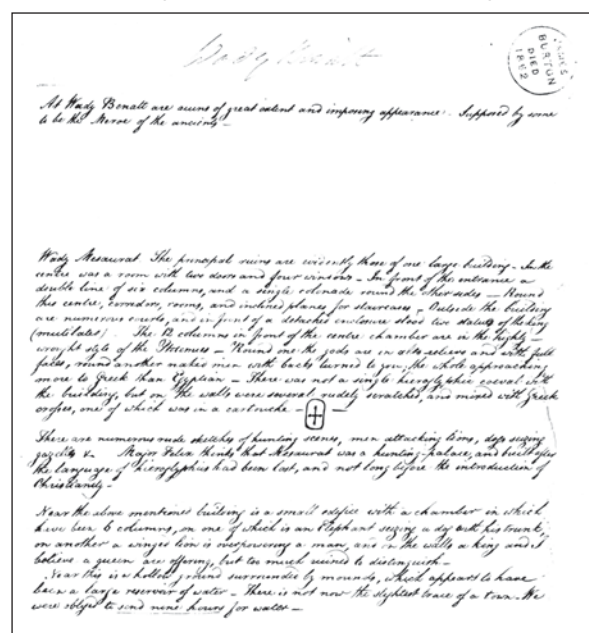 Wady Benatt
JAMES
BURTON
DIED
1862
At Wady Benatt are ruins of great extent and imposing appearance. Supposed by some
to be the Meroe of the ancients –
Wady Mesaurat The principal ruins are evidently those of one large building – In the
centre was a room with two doors and four windows – In front of the entrance a
double line of six columns, and a single colonade round the other sides – Round
this centre, corredors, rooms, and inclined planes for staircases. Outside the building
are numerous courts, and in front of a detached enclosure stood two statues of the king
(mutilated). The 12 columns in front of the centre chamber are in the highly –
wrought style of the Ptolemies – Round one the gods are in alto relievo and with full
faces, round another naked men with backs turned to you, the whole approaching
more to Greek than Egyptian – There was not a single hieroglyphic coeval with
the building, but on the walls were several rudely scratched, and mixed with Greek
crosses, one of which was in a cartouche –
There are numerous rude sketches of hunting scenes, men attacking lions, dogs seizing
gazelles &. Major Felix thinks that Mesaurat was a hunting-palace, and built after
the language of hieroglyphics had been lost, and not long before the introduction of
Christianity –
Near the above mentioned building is a small edifice with a chamber in which
have been 6 columns, on one of which is an Elephant seizing a dog with his trunk,
on another a winged lion is overpowering a man, and on the walls a king and I
believe a queen are offering, but too much ruined to distinguish –
Near this is a hollow ground surrounded by mounds, which appears to have
been a large reservoir of water – There is not now the slightest trace of a town – We
were obliged to send nine hours for water –